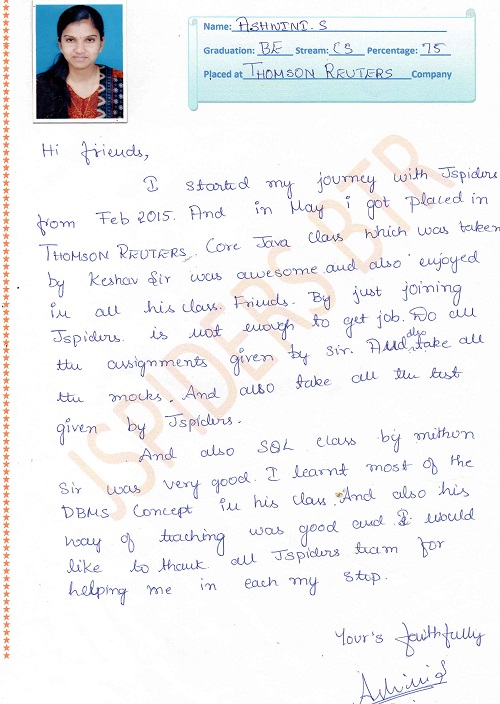 Name: ASHWINI.S
Graduation: BE Stream: CS Percentage: 75
Placed at THOMSON REUTERS Company
Hi friends,
I started my journey with Jspiders
from Feb 2015. And in May i got placed in
THOMSON REUTERS. Core Java class which was taken
by Keshav Sir was awesome and also enjoyed
in all his class. Friends. By just joining
Jspiders. is not enough to get job. Do all
the assignments given by sir. And also take all
the mocks. And also take all the test
given by Jspiders.
And also SQL class by mithun
Sir was very good. I learnt most of the
DBMS Concept in his class. And also his
way of teaching was good and I would
like to thank all Jspiders team for
helping me in each my step.
Your's faithfully
Ashwini S
JSPIDERS BTR